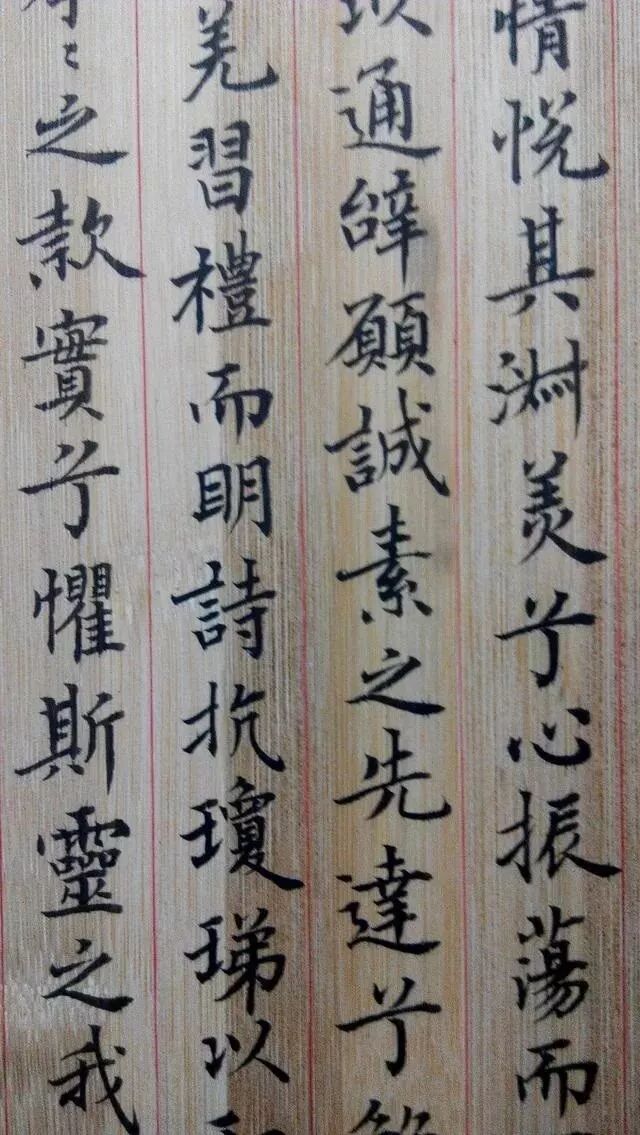 情悦其淑美兮心振蕩而
以通辝願誠素之先達兮
羌習禮而明詩抗瓊珶以
之款實兮懼斯靈之我